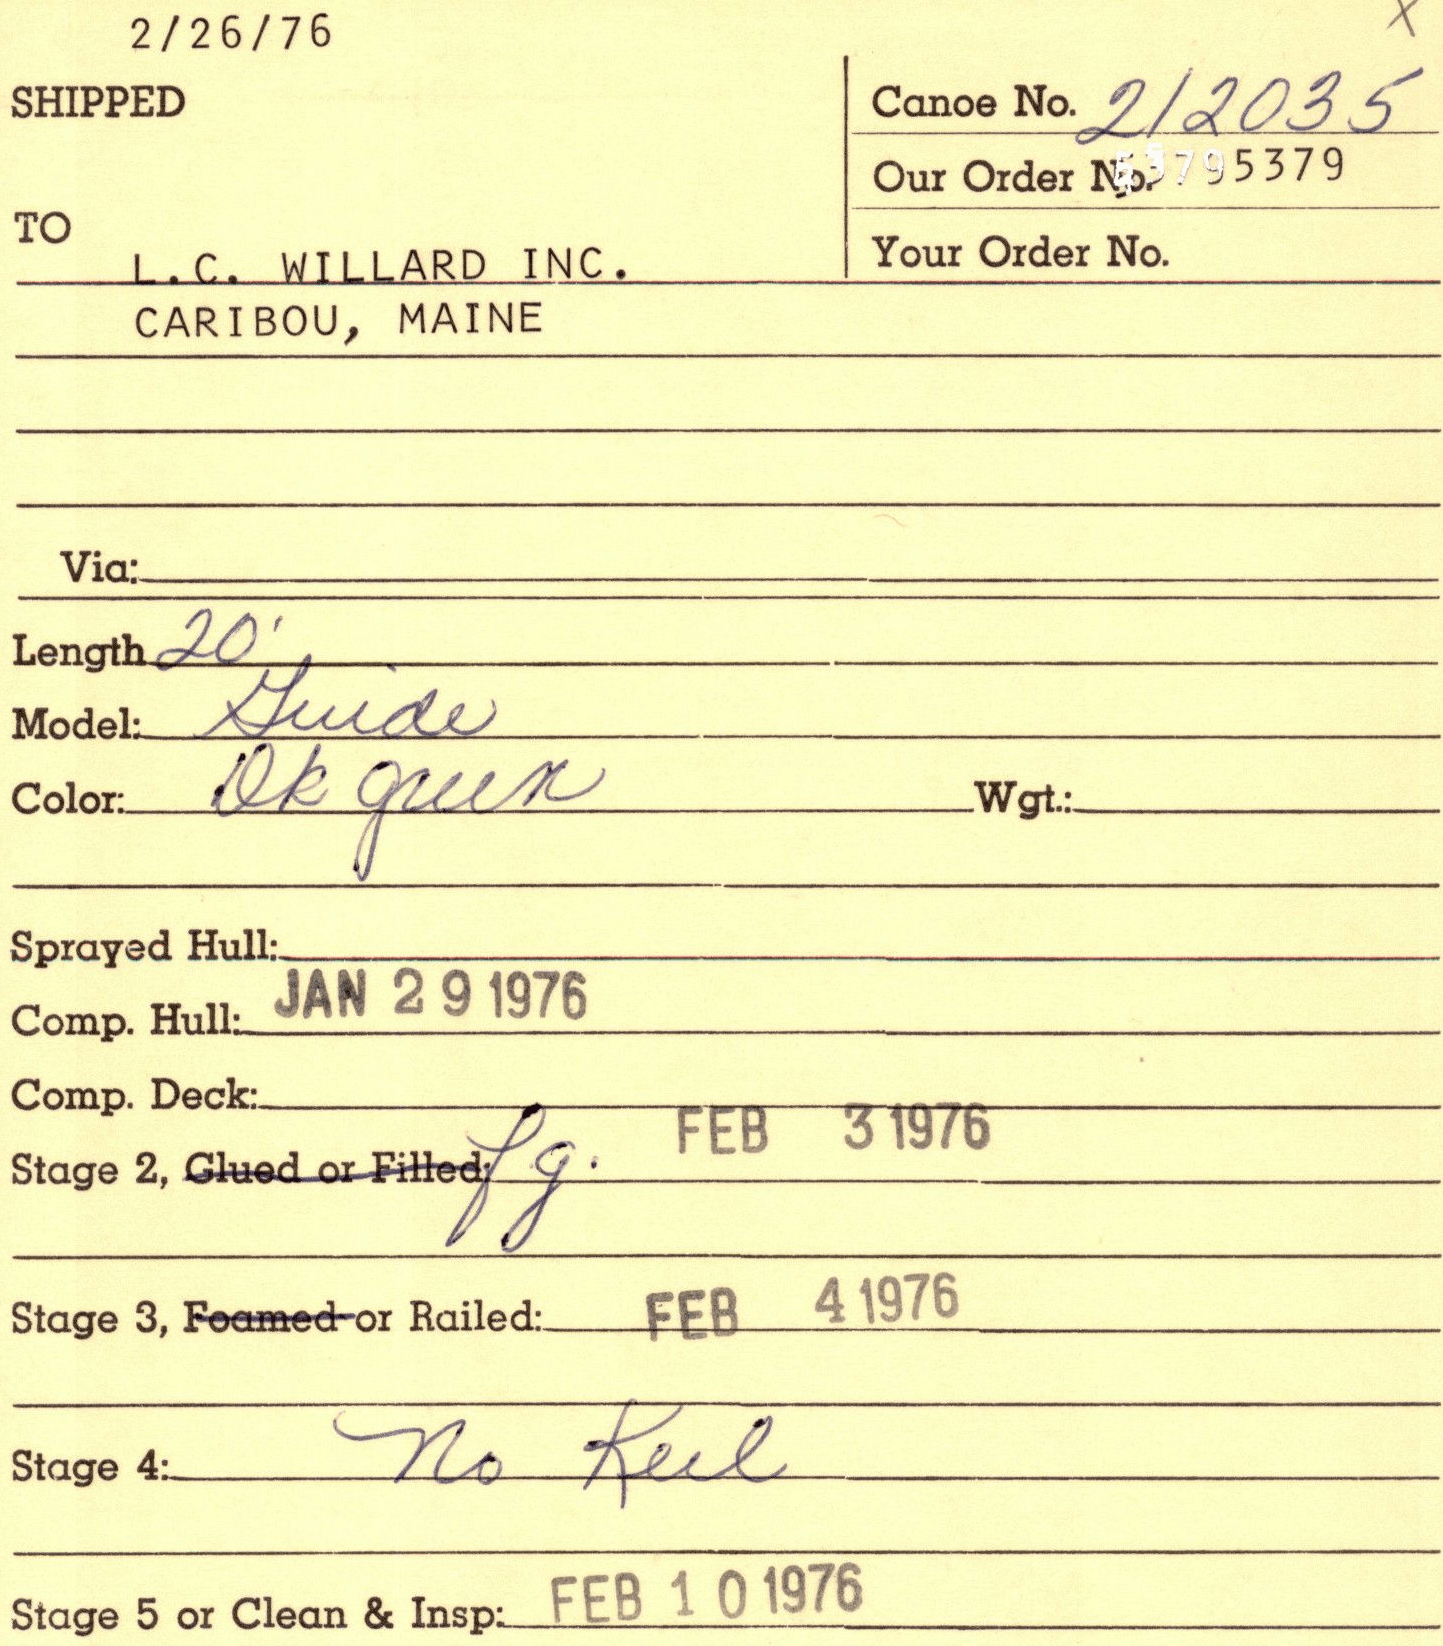 X
2/26/76
SHIPPED
Canoe No. 212035
Our Order No. 5379
TO
Your Order No.
L.C. WILLARD INC.
CARIBOU, MAINE
Via:
Length 20'
Model: Guide
Color: Dk green Wgt.:
Sprayed Hull:
Comp. Hull: JAN 29 1976
Comp. Deck:
Stage 2, Glued or Filled: fg. FEB 3 1976
Stage 3, Foamed or Railed: FEB 4 1976
Stage 4: No Keel
Stage 5 or Clean & Insp: FEB 10 1976